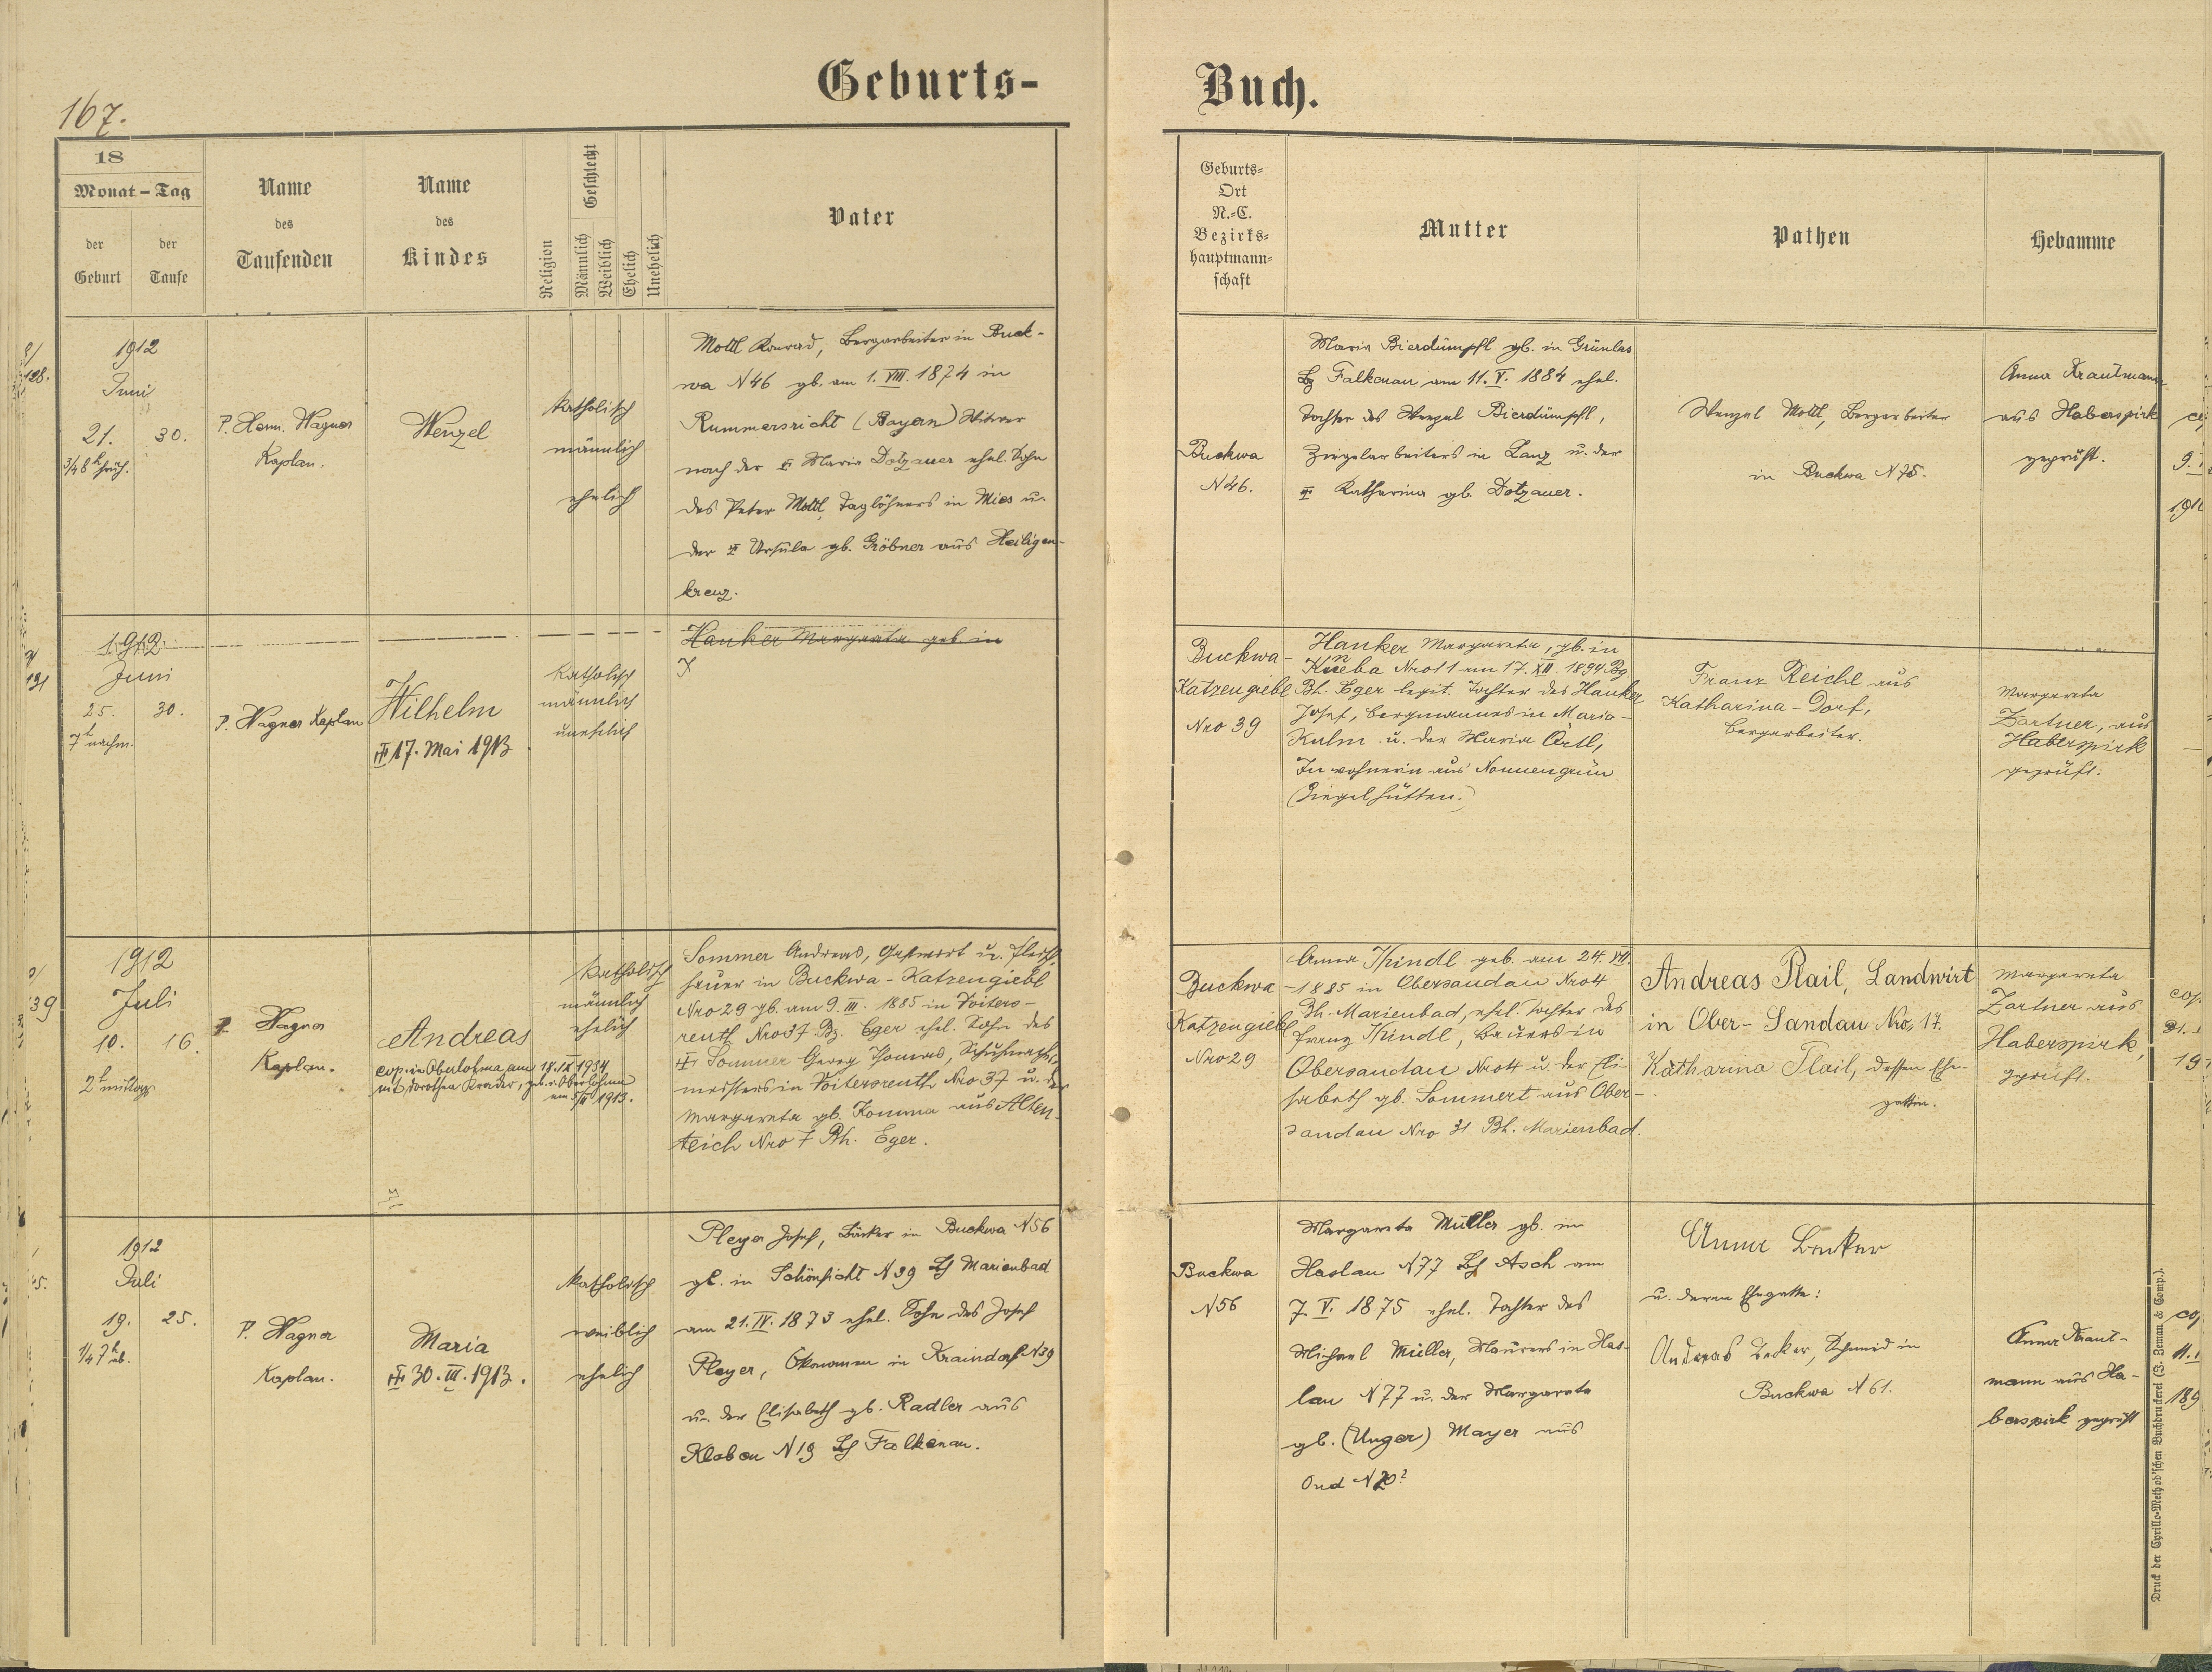 Geburts-
Buch.
167.
18
Monat - Tag
der Geburt
der Taufe
Name des Taufenden
Name des Kindes
Religion
Geschlecht
Männlich
Weiblich
Ehelich
Unehelich
Vater
Geburts-
Ort
N.-C.
Bezirks-
hauptmann-
schaft
Mutter
Pathen
Hebamme
128.
1912
Juni
21. 30.
3/4 8 h früh.
P. Herm. Wagner
Kaplan.
Wenzel
katholisch
männlich
ehelich
Mottl Konrad, Bergarbeiter in Buck-
wa N46 gb. am 1. VIII. 1874 in
Rummersricht (Bayern) Witwer
nach der Maria Dotzauer ehel. Sohn
des Peter Mottl, Taglöhners in Mies u.
der Ursula gb. Gröbner aus Heiligen-
kreuz.
Buckwa
N46.
Maria Bierdümpfl gb. in Grünlas
Bz Falkenau am 11. V. 1884 ehel.
Tochter des Wenzel Bierdümpfl,
Ziegelarbeiters in Lanz u. der
Katharina gb. Dotzauer.
Wenzel Mottl, Bergarbeiter
in Buckwa N 75.
Anna Krautmann
aus Haberspirk
geprüft.
131
1912
Juni
25. 30.
7 h nachm.
P. Wagner Kaplan
Wilhelm
17. Mai 1913
katholisch
männlich
unehelich
Hanker Margareta geb. in
Buckwa-
Katzengiebl
Nro 39
Hanker Margareta, gb. in
Kneba Nro 11 am 17. XII. 1894 Bz.
Bh. Eger legit. Tochter des Hanker
Josef, Bergmannes in Maria-
Kulm u. der Maria Ortl,
Inwohnerin aus Nonnengrün
(Ziegelhütten.)
Franz Reichl aus
Katharina-Dorf,
Bergarbeiter.
Margareta
Zartner, aus
Haberspirk
geprüft.
39
1912
Juli
10. 16.
2 h mittags
P. Wagner
Kaplan.
Andreas
cop. in Oberlohma am 17. IX 1934
mit Dorothea Krader, geb. in Oberlohma
1913.
katholisch
männlich
ehelich
Sommer Andreas, Gastwirt u. Fleisch-
hauer in Buckwa-Katzengiebl
Nro 29 gb. am 9. III. 1885 in Voiters-
reuth Nro 37 Bz. Eger ehel. Sohn des
Sommer Georg Thomas, Schuhmacher-
meisters in Voitersreuth Nro 37 u. der
Margareta gb. Komma aus Alten-
teich Nro 7 Bh. Eger.
Buckwa-
Katzengiebl
Nro 29
Anna Thindl geb. am 24. VII.
1885 in Obersandau Nro 4
Bh. Marienbad, ehel. Tochter des
Franz Thindl, Bauers in
Obersandau Nro 4 u. der Eli-
sabeth gb. Sommert aus Ober-
sandau Nro 31 Bh. Marienbad.
Andreas Plail, Landwirt
in Ober-Sandau Nro. 17.
Katharina Plail, dessen Ehe-
gattin.
Margareta
Zartner aus
Haberspirk,
geprüft.
1912
Juli
19. 25.
1/4 7 h ab.
P. Wagner
Kaplan.
Maria
30. III. 1913.
katholisch
weiblich
ehelich
Pleyer Josef, Bäcker in Buckwa N56
gb. in Schönficht N39 Bh Marienbad
am 21. IV. 1873 ehel. Sohn des Josef
Pleyer, Ökonomen in Kraindorf N39
u. der Elisabeth gb. Radler aus
Kloben N19 Bh Falkenau.
Buckwa
N56
Margareta Müller gb. in
Haslau N77 Bh Asch am
7. V. 1875 ehel. Tochter des
Michael Müller, Maurers in Has-
lau N77 u. der Margareta
gb. (Unger) Mayer aus
N 20?
Anna Becker
u. deren Ehegatte:
Andreas Becker, Schmid in
Buckwa N 61.
Anna Kraut-
mann aus Ha-
berspirk geprüft
Druck der Cyrillo-Method'schen Buchdruckerei (J. Zeman & Comp.).